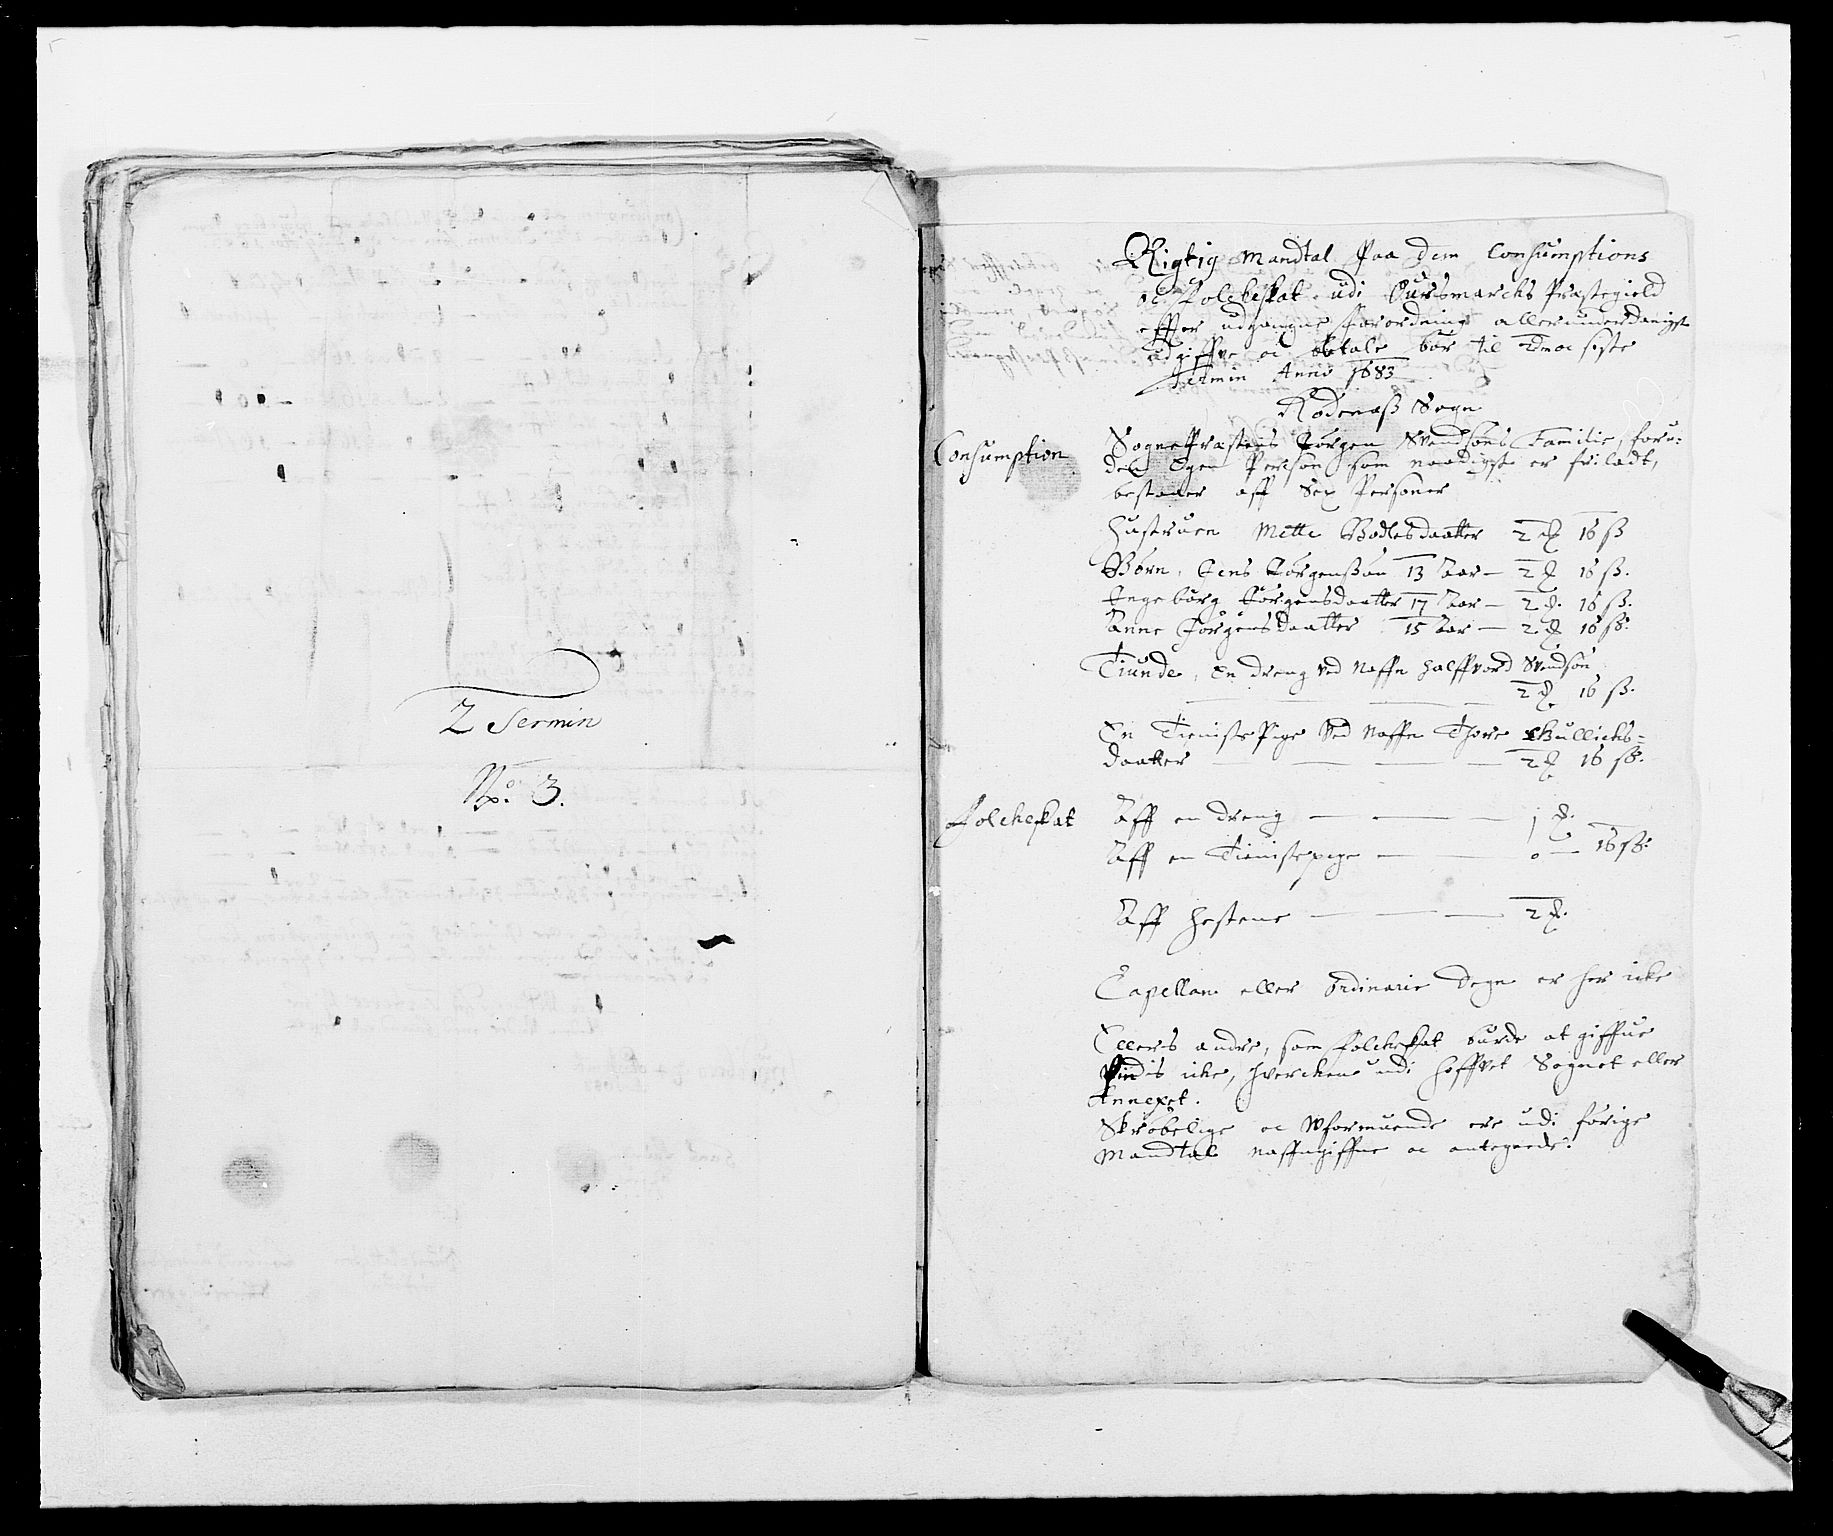 2 Termin
No: 3.
Rigtig Mandtal Paa dem Consumptions
oc Folckeskat udi Ouersmarcks Præstegield
effter udgangne forordning allerunderdanigst
udgiffve oc betale bør til 2den oc siste
Termin Anno 1683
Rødenæss Sogn
Consumption
SognePræstens Jørgen Svendsøns Familie, foru-
den Egen Person som naadigst er friladt,
bestaaer aff Sex Personer
Hustruen Mette Bodlesdaatter 2 16 ß
Børn, Jens Jørgenssøn 13 Aar — 2 16 ß.
Ingeborg Jørgensdaatter 17 Aar — 2 16 ß.
Anne Jørgensdaatter 15 Aar — 2 16 ß.
Tiunde, En dreng ved Naffn Halffvord Svendsøn
2 16 ß.
En Tieniste Pige Ved Naffn Thore Gullichs-
daatter — — — 2 16 ß.
Folckeskat
Aff en dreng — — — 1
Aff en Tienistepige — — — 0 — 16 ß:
Aff Hestene — — — 2
Capellan eller Ordinarie Degn er her icke
Ellers andre, som Folckeskat burde at giffue
findis icke, hverckens udi Hoffvet Sognet eller
Annexet.
Skrøbelige oc Wformuende ere udi forige
Mandtal naffngiffne oc antegnede: